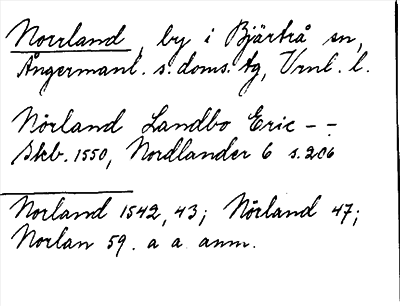 Norrland, by i Bjärtrå sn,
Ångermanl. s. doms. tg, Vrnl. l.
Nörland Landbo Eric - -
Skb. 1550, Nordlander 6 s. 206
Norland 1542, 43; Nörland 47;
Norlan 59. a a anm.